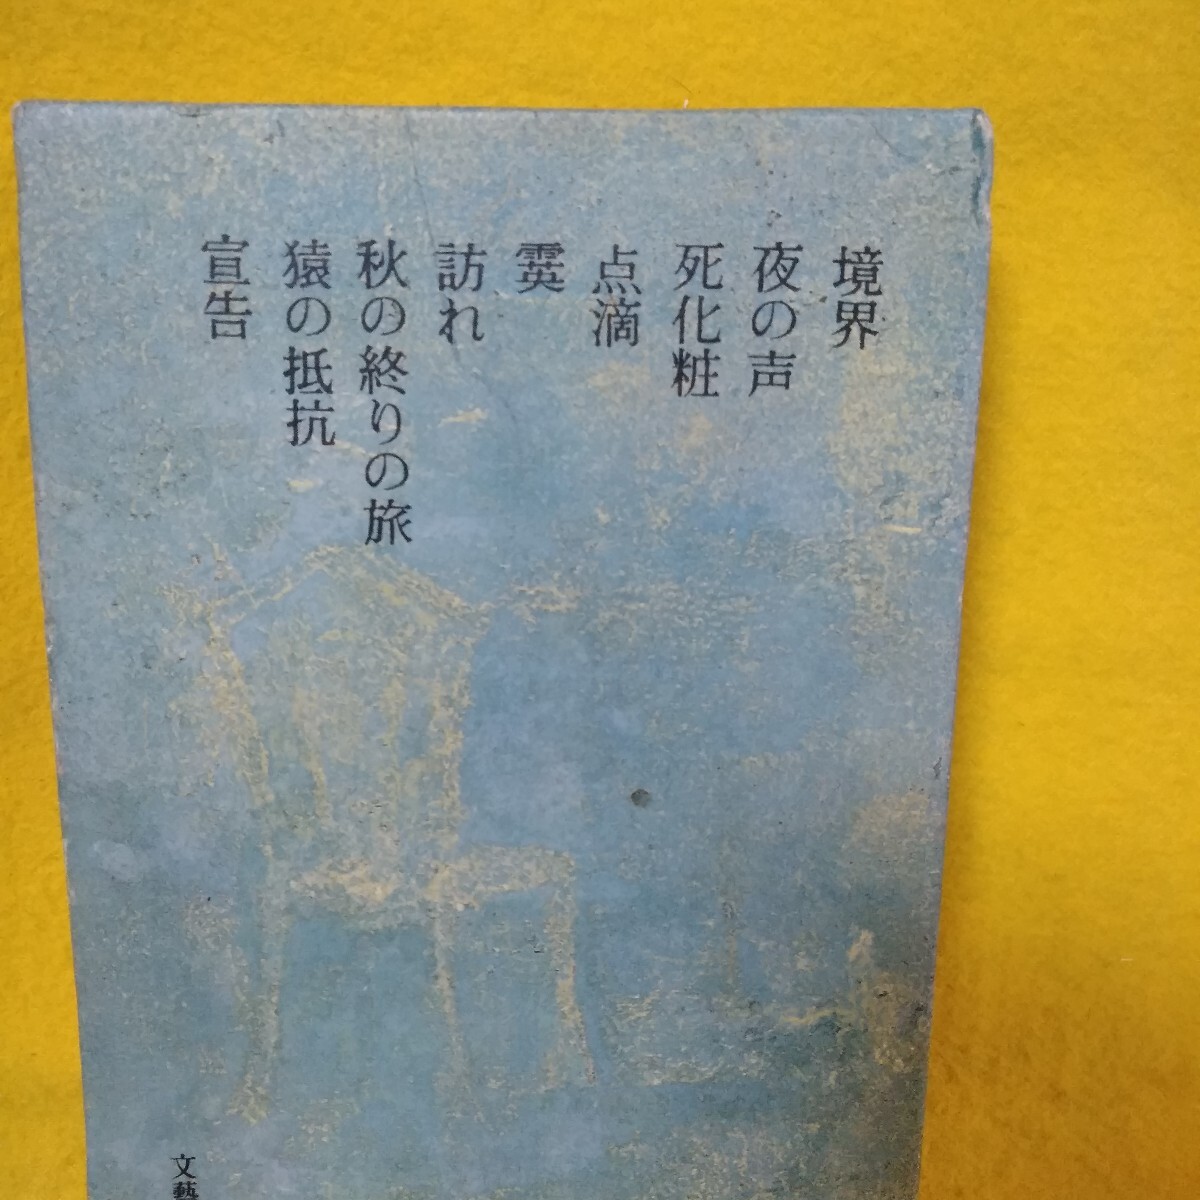 境界
夜の声
死化粧
点滴
霙
訪れ
秋の終りの旅
猿の抵抗
宣告
文藝